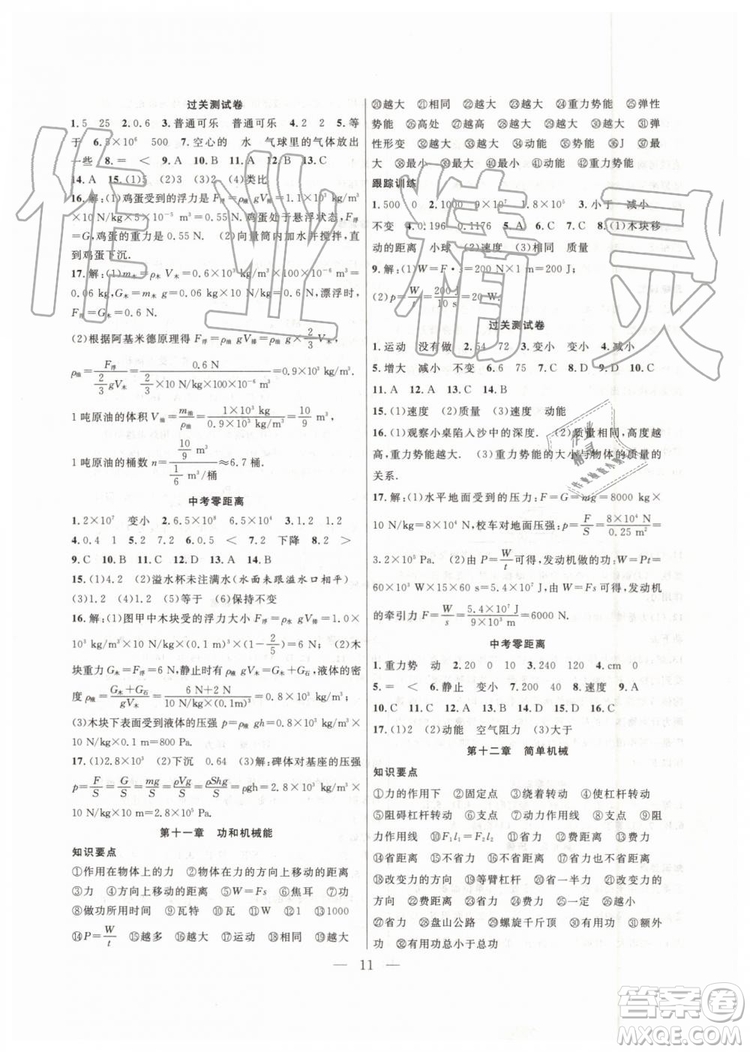 过关测试卷
1.5 25 2.0.6 3.普通可乐 普通可乐 4.2 2 5.等
于 6.5×10⁶ 500 7.空心的 水 气球里的气体放出
一些 8.= < 9.A 10.A 11.B 12.B 13.C
14.A 15.(1)5 (2)3 (4)类比
16.解:(1)鸡蛋受到的浮力为 F浮=ρ水gV排=1.1×10³
kg/m³×10 N/kg×5×10⁻⁵ m³=0.55 N,鸡蛋处于悬浮状态,F浮
=G,鸡蛋的重力是0.55 N. (2)向量筒内加水并搅拌,直
到鸡蛋下沉.
17.解:(1)m木=ρ木V木=0.6×10³ kg/m³×1×10⁻⁴ m³=
0.06 kg,G木=m木g=0.06 kg×10 N/kg=0.6 N,漂浮时,F浮
=G木=0.6 N.
(2)根据阿基米德原理得 F浮=ρ油gV排=ρ油g×2/3 V木,
ρ油=F浮/(2/3 gV木)=0.6 N/(2/3×10 N/kg×1×10⁻⁴ m³)=0.9×10³ kg/m³
1吨原油的体积 V油=m油/ρ油=1×10³ kg/(0.9×10³ kg/m³)=10/9 m³
1吨原油的桶数 n=(10/9 m³)/(1/6 m³/桶)≈6.7/桶
中考零距离
1.2×10⁷ 变小 2.6.5×10⁵ 6.5×10⁷ 3.1.2
4.0.4 1 5.2 2 6.2×10⁷ 7.下降 > 8.> <
9.C 10.B 11.C 12.D 13.A 14.B
15.(1)4.2 (2)溢水杯未注满水(水面未跟溢水口相平)
(3)1.2 (5)等于 (6)保持不变
16.解:(1)图甲中木块受的浮力大小 F浮=ρ水gV排=1.0×
10³ kg/m³×10 N/kg×(0.1 m)³×(1-2/5)=6 N (2)木
块重力 G木=F浮=6 N,静止时 F浮=G木+G石,液体的密
度 ρ液=(G木+G石)/gV木=(6 N+2 N)/(10 N/kg×(0.1m)³)=0.8×10³ kg/m³
(3)木块下表面受到的液体的压强 p=ρ液gh=0.8×10³ kg/m³×10
N/kg×0.1 m=800 Pa
17.(1)2.8×10³ (2)下沉 0.64 (3)解:碑体对基座的压强
p=F/S=G/S=mg/S=ρVg/S=ρShg/S=ρgh=2.8×10³ kg/m³×10
N/kg×1 m=2.8×10⁴ Pa
第十一章 功和机械能
知识要点
①作用在物体上的力 ②物体在力的方向上移动的距离
③力 ④力的方向上移动的距离 ⑤W=Fs ⑥焦耳 ⑦J
⑧做功所用时间 ⑨瓦特 ⑩瓦 ⑪W ⑫1 ⑬1000
⑭P=W/t ⑮越多 ⑯越大 ⑰运动 ⑱相同 ⑲越大
⑳越大 ㉑相同 ㉒越大 ㉓越大 ㉔重力势能 ㉕弹性
势能 ㉖高处 ㉗越高 ㉘越大 ㉙越大 ㉚越大 ㉛弹
性形变 ㉜越大 ㊳最小 ㊴最大 ㊶动能 ㊷重力势能
跟踪训练
1.500 0 2.10 3.小于 减小
不变 4.0.196 0.1176 5.A 6.C 7.(1)木块移
动的距离 小球 (2)速度 (3)相同 质量
9.解:(1)W=F·s=200 N×1 m=200 J,
(2)p=W/t=200 J/10 s=20 W.
过关测试卷
1.运动 没有做 2.54 72 3.变小 变小 4.减小
5.增大 减小 不变
11.A 12.A 13.B 14.B
15.(1)速度 (2)质量 (3)速度 动能
16.(1)观察小桌陷入沙中的深度. (2)质量相同,高度越
高,重力势能越大. (3)重力势能的大小与物体的质量的
关系.
17.解:(1)水平地面受到的压力:F=G=mg=8000 kg
×10 N/kg=8×10⁴ N,校车对地面压强:p=F/S=8×10⁴ N/0.25 m²=
3.2×10⁵ Pa. (2)由 P=W/t 可得,发动机做的功:W=Pt=
60×10³ W×15×60 s=5.4×10⁷ J. (3)由 W=Fs 可得,发动
机的牵引力 F=W/s=5.4×10⁷ J/9×10³ m=6000 N.
中考零距离
1.重力势 动 2.20 0 10 3.240 120 4.cm 0
5.= < 6.静止 变小 7.200 40 8.速度
10.C 11.C 12.D 13.B 14.D 15.D 16.C
17.(1)2 (2)动能 空气阻力 (3)大于
第十二章 简单机械
知识要点
①力的作用下 ②固定点 ③绕着转动 ④使杠杆转动
⑤阻碍杠杆转动 ⑥支点 ⑦动力作用线 ⑧支点 ⑨阻
力作用线 ⑩F₁l₁=F₂l₂ ⑪省力 ⑫费距离 ⑬费力
⑭省距离 ⑮不省力 ⑯不费力 ⑰不省力
⑱改变力的方向 ⑲等臂杠杆 ⑳省一半力 ㉑费距离
㉒改变力的方向 ㉓省力 ㉔改变力的方向 ㉕费距离
㉖省力 ㉗盘山公路 ㉘螺旋千斤顶 ㉙有用功 ㉚额外
功 ㉜有用功总小于总功
— 11 —
作业精灵
答案圈
MXQE.COM